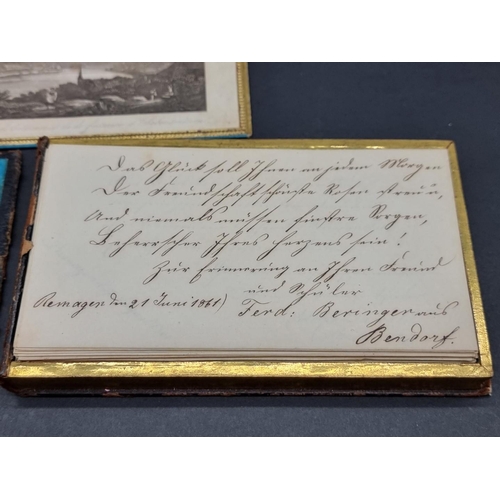 Das Glück soll Ihnen an jedem Morgen
Der Freundschaft schönste Rosen streu'n,
Und niemals müssen finstre Sorgen,
Beherrscher Ihres Herzens sein!
Zur Erinnerung an Ihren Freund
und Schüler
Remagen den 21 Juni 1861)
Ferd: Beringer aus
Bendorf.